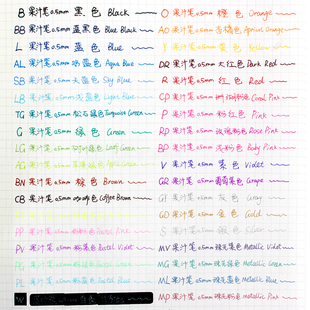 B 果汁笔 0.5mm 黑色 Black
BB 果汁笔 0.5mm 蓝黑色 Blue Black
L 果汁笔 0.5mm 蓝色 Blue
AL 果汁笔 0.5mm 水蓝色 Aqua Blue
SB 果汁笔 0.5mm 天蓝色 Sky Blue
LB 果汁笔 0.5mm 浅蓝色 Light Blue
TG 果汁笔 0.5mm 松石绿色 Turquoise Green
G 果汁笔 0.5mm 绿色 Green
LG 果汁笔 0.5mm 绿色 Leaf Green
AG 果汁笔 0.5mm 绿色 Green
BN 果汁笔 0.5mm 棕色 Brown
CB 果汁笔 0.5mm 咖啡色 Coffee Brown
PP 果汁笔 0.5mm 粉色 Pastel
PV 果汁笔 0.5mm 紫色 Pastel Violet
PG 果汁笔 0.5mm 绿色 Pastel Green
PL 果汁笔 0.5mm 蓝色 Pastel Blue
O 果汁笔 0.5mm 橙色 Orange
AO 果汁笔 0.5mm 杏橘色 Apricot Orange
Y 果汁笔 0.5mm 黄色 Yellow
DR 果汁笔 0.5mm 大红色 Dark Red
R 果汁笔 0.5mm 红色 Red
CP 果汁笔 0.5mm 珊瑚粉色 Coral Pink
P 果汁笔 0.5mm 粉红色 Pink
RP 果汁笔 0.5mm 玫瑰粉色 Rose Pink
BP 果汁笔 0.5mm 浅粉色 Baby Pink
V 果汁笔 0.5mm 紫色 Violet
GR 果汁笔 0.5mm 葡萄紫色 Grape
GY 果汁笔 0.5mm 灰色 Gray
GD 果汁笔 0.5mm 金色 Gold
S 果汁笔 0.5mm 银色 Silver
MV 果汁笔 0.5mm 珠光紫色 Metallic Violet
MG 果汁笔 0.5mm 珠光绿色 Metallic Green
ML 果汁笔 0.5mm 珠光蓝色 Metallic Blue
MP 果汁笔 0.5mm 珠光粉色 Metallic Pink